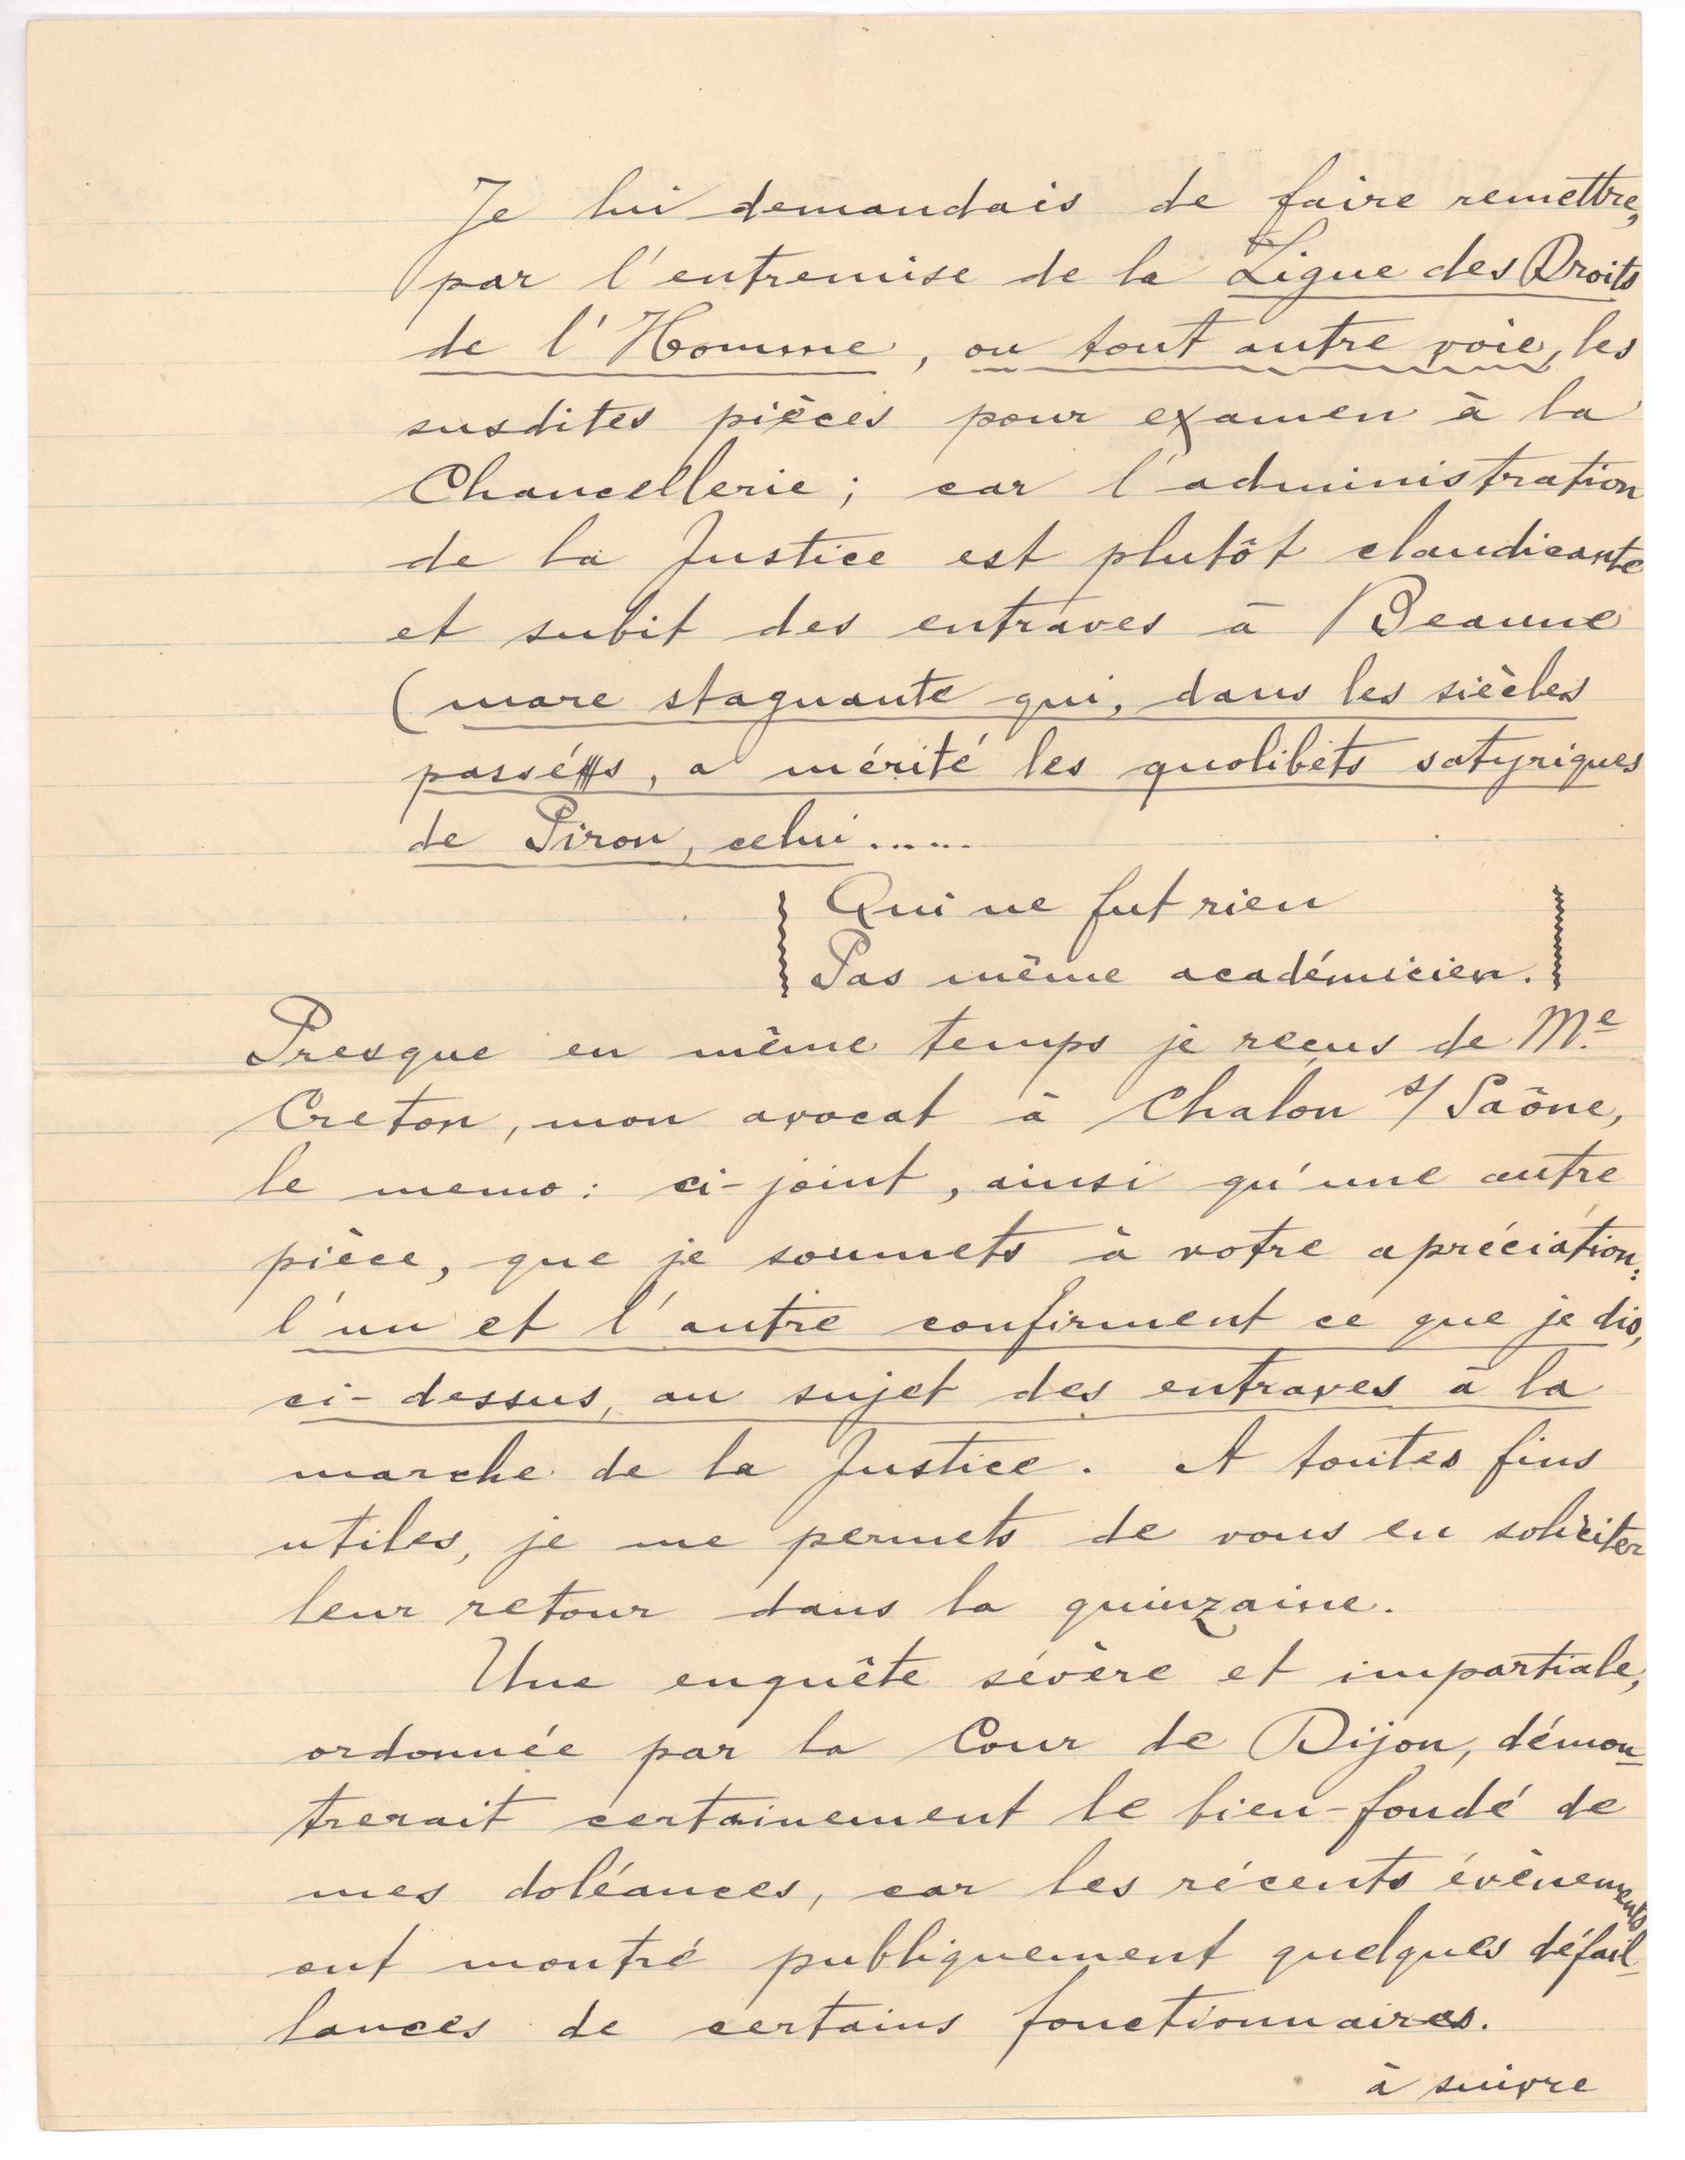 Je lui demandais de faire remettre,
par l'entremise de la Ligue des Droits
de l'Homme, ou tout autre voie, les
susdites pièces pour examen à la
Chancellerie; car l'administration
de la Justice est plutôt claudicante
et subit des entraves à Beaune
(mare stagnante qui, dans les siècles
passés, a mérité les quolibets satyriques
de Piron, celui......
Qui ne fut rien
Pas même académicien.
Presque en même temps je reçus de Me
Creton, mon avocat à Chalon s/Saône,
le memo: ci-joint, ainsi qu'une autre
pièce, que je soumets à votre apréciation:
l'un et l'autre confirment ce que je dis,
ci-dessus, au sujet des entraves à la
marche de la Justice. A toutes fins
utiles, je me permets de vous en soliciter
leur retour dans la quinzaine.
Une enquête sévère et impartiale,
ordonnée par la Cour de Dijon, démon-
trerait certainement le bien-fondé de
mes doléances, car les récents évènements
ont montré publiquement quelques défail-
lances de certains fonctionnaires.
à suivre